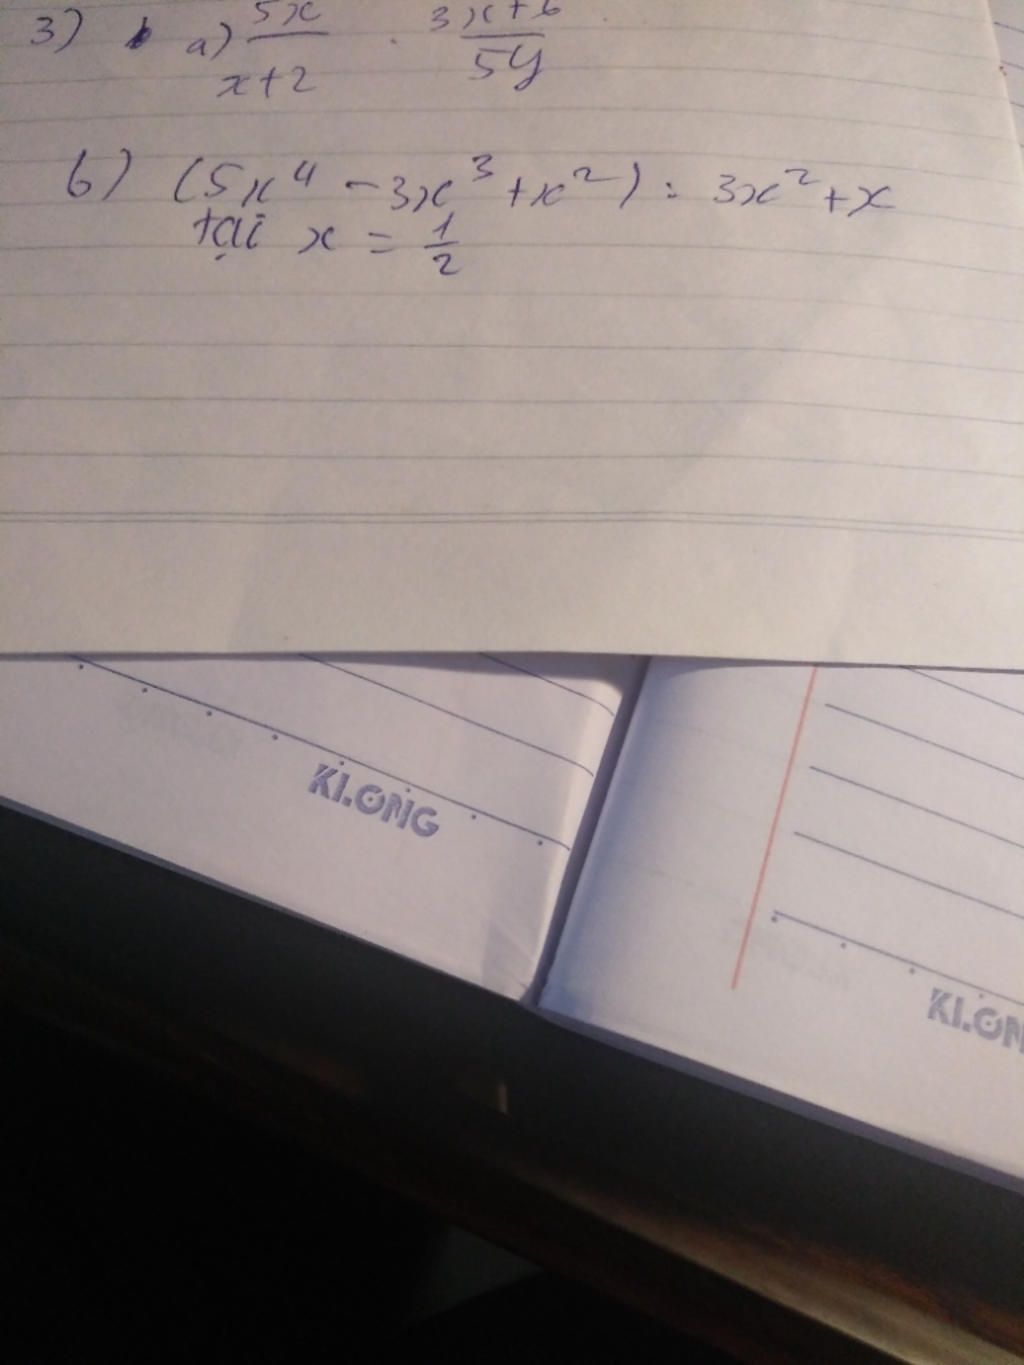 3) a) 5x/x+2 . 3x+6/5y
b) (5x⁴ - 3x³ + x²) : 3x² + x
tại x = 1/2
KLONG
KLON